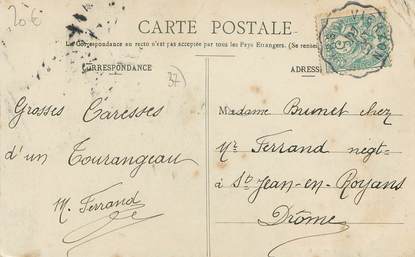 20 €
CARTE POSTALE
La Correspondance au recto n'est pas acceptée par tous les Pays Etrangers. (Se rensei
CORRESPONDANCE
ADRESS
37
Grosses Caresses
d'un Tourangeau
M. Ferrand
Madame Brunet chez
Mr Ferrand negt
à St Jean-en-Royans
Drôme